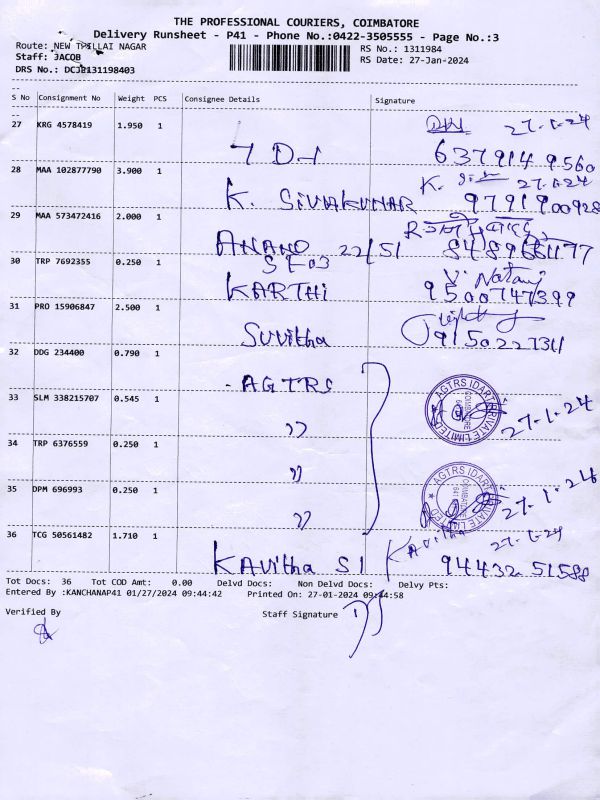 THE PROFESSIONAL COURIERS, COIMBATORE
Delivery Runsheet - P41 - Phone No.:0422-3505555 - Page No.:3
Route: NEW TPILLAI NAGAR
RS No.: 1311984
Staff: JACOB
RS Date: 27-Jan-2024
DRS No.: DCJB131198403
S No Consignment No Weight PCS Consignee Details Signature
27 KRG 4578419 1.950 1
27-1-24
637914 9560
28 MAA 102877790 3.900 1
K. 27-1-24
K. SIVAKUMAR 9791900928
29 MAA 573472416 2.000 1
ANAND 22/51
30 TRP 7692355 0.250 1
KARTHI 9500747399
31 PRO 15906847 2.500 1
Suvitha 9150227311
32 DDG 234400 0.790 1
- AGTRS
33 SLM 338215707 0.545 1
" 27-1-24
34 TRP 6376559 0.250 1
"
35 DPM 696993 0.250 1
" 27-1-24
36 TCG 50561482 1.710 1
Kavitha 27-1-24
KAvitha S1 94432 51588
Tot Docs: 36 Tot COD Amt: 0.00 Delvd Docs: Non Delvd Docs: Delvy Pts:
Entered By :KANCHANAP41 01/27/2024 09:44:42 Printed On: 27-01-2024 09:44:58
Verified By Staff Signature